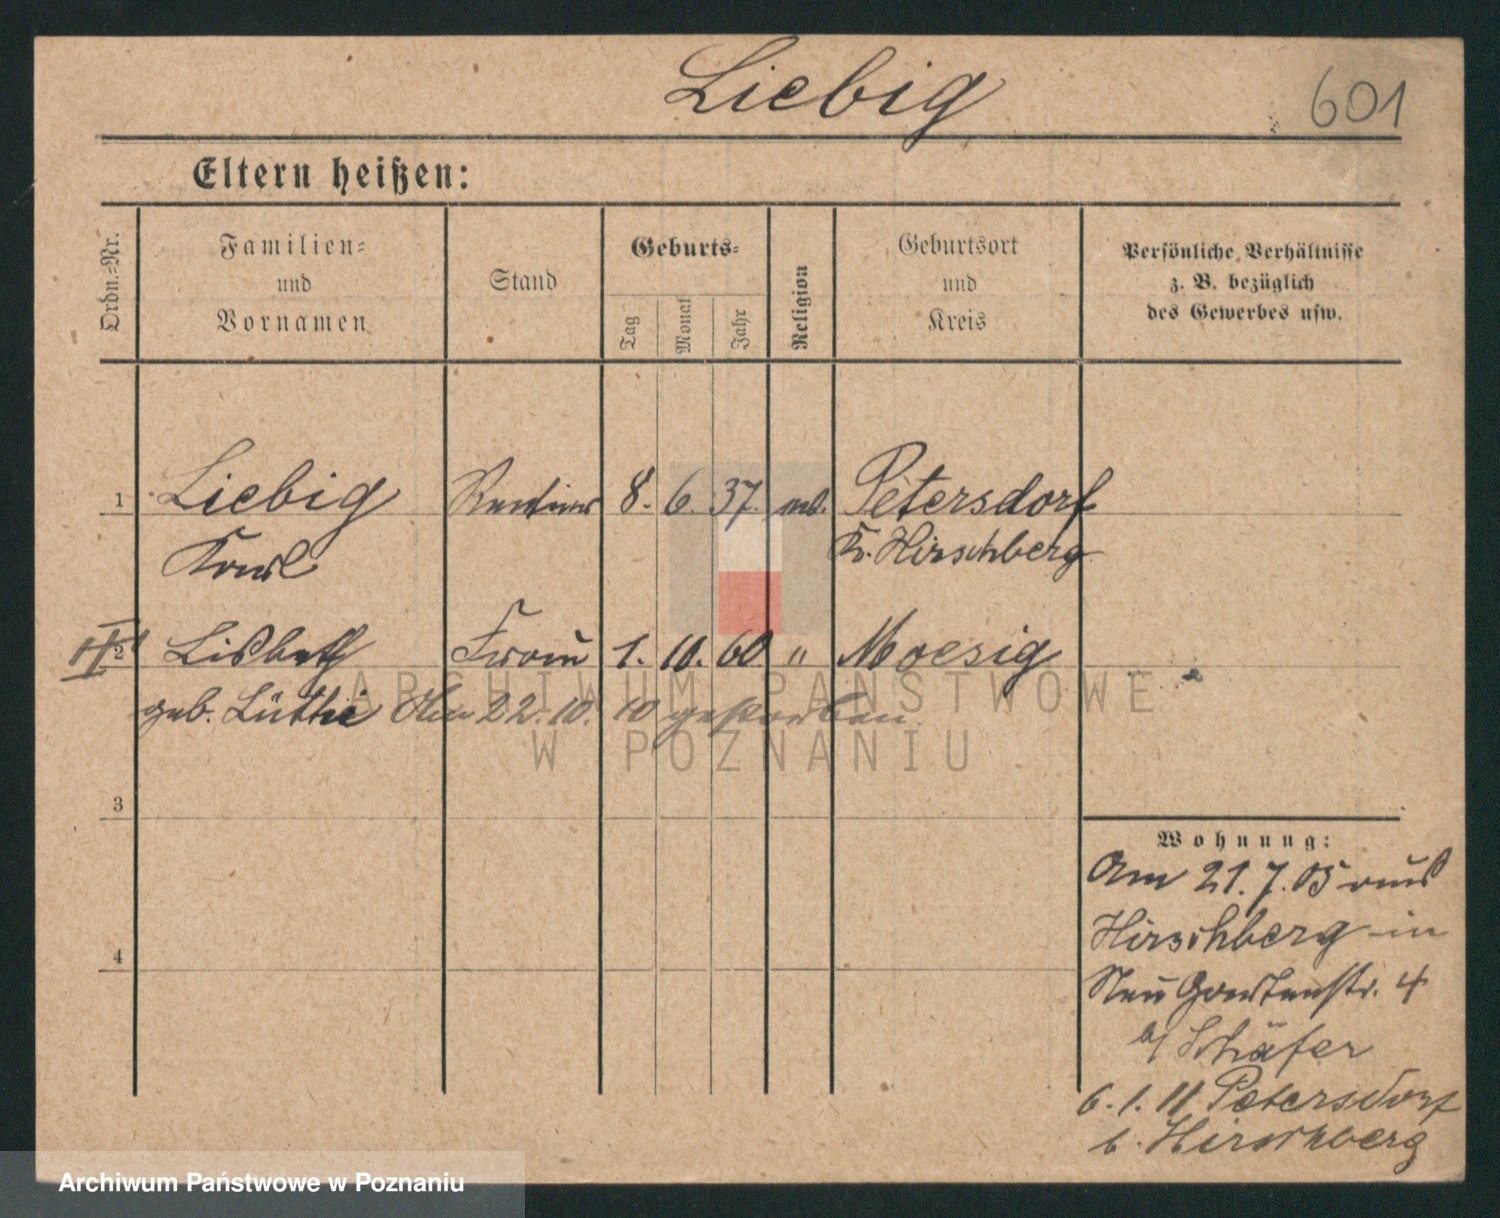 Liebig
601
Eltern heißen:
Ordn.-Nr.
Familien-
und
Vornamen
Stand
Geburts-
Tag
Monat
Jahr
Religion
Geburtsort
und
Kreis
Persönliche Verhältnisse
z. B. bezüglich
des Gewerbes usw.
1 Liebig Rentier 8. 6. 37. Petersdorf
Karl Kr. Hirschberg
2 Lisbeth Frau 1. 10. 60 " Moesig
geb. Lüthi Am 22.10. 10 gestorben
ARCHIWUM PAŃSTWOWE
W POZNANIU
3
4
Wohnung:
Am 21.7.05 aus
Hirschberg in
Neu Gartenstr. 4
b/ Schäfer
6.1.11 Petersdorf
b. Hirschberg
Archiwum Państwowe w Poznaniu